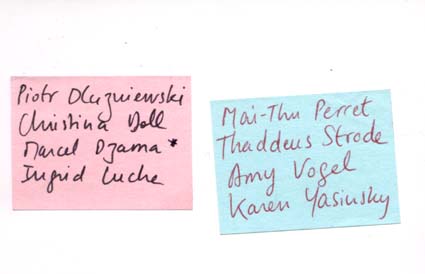 Piotr Dluzniewski
Christina Doll
Marcel Dzama *
Ingrid Luche
Mai-Thu Perret
Thaddeus Strode
Amy Vogel
Karen Yasinsky